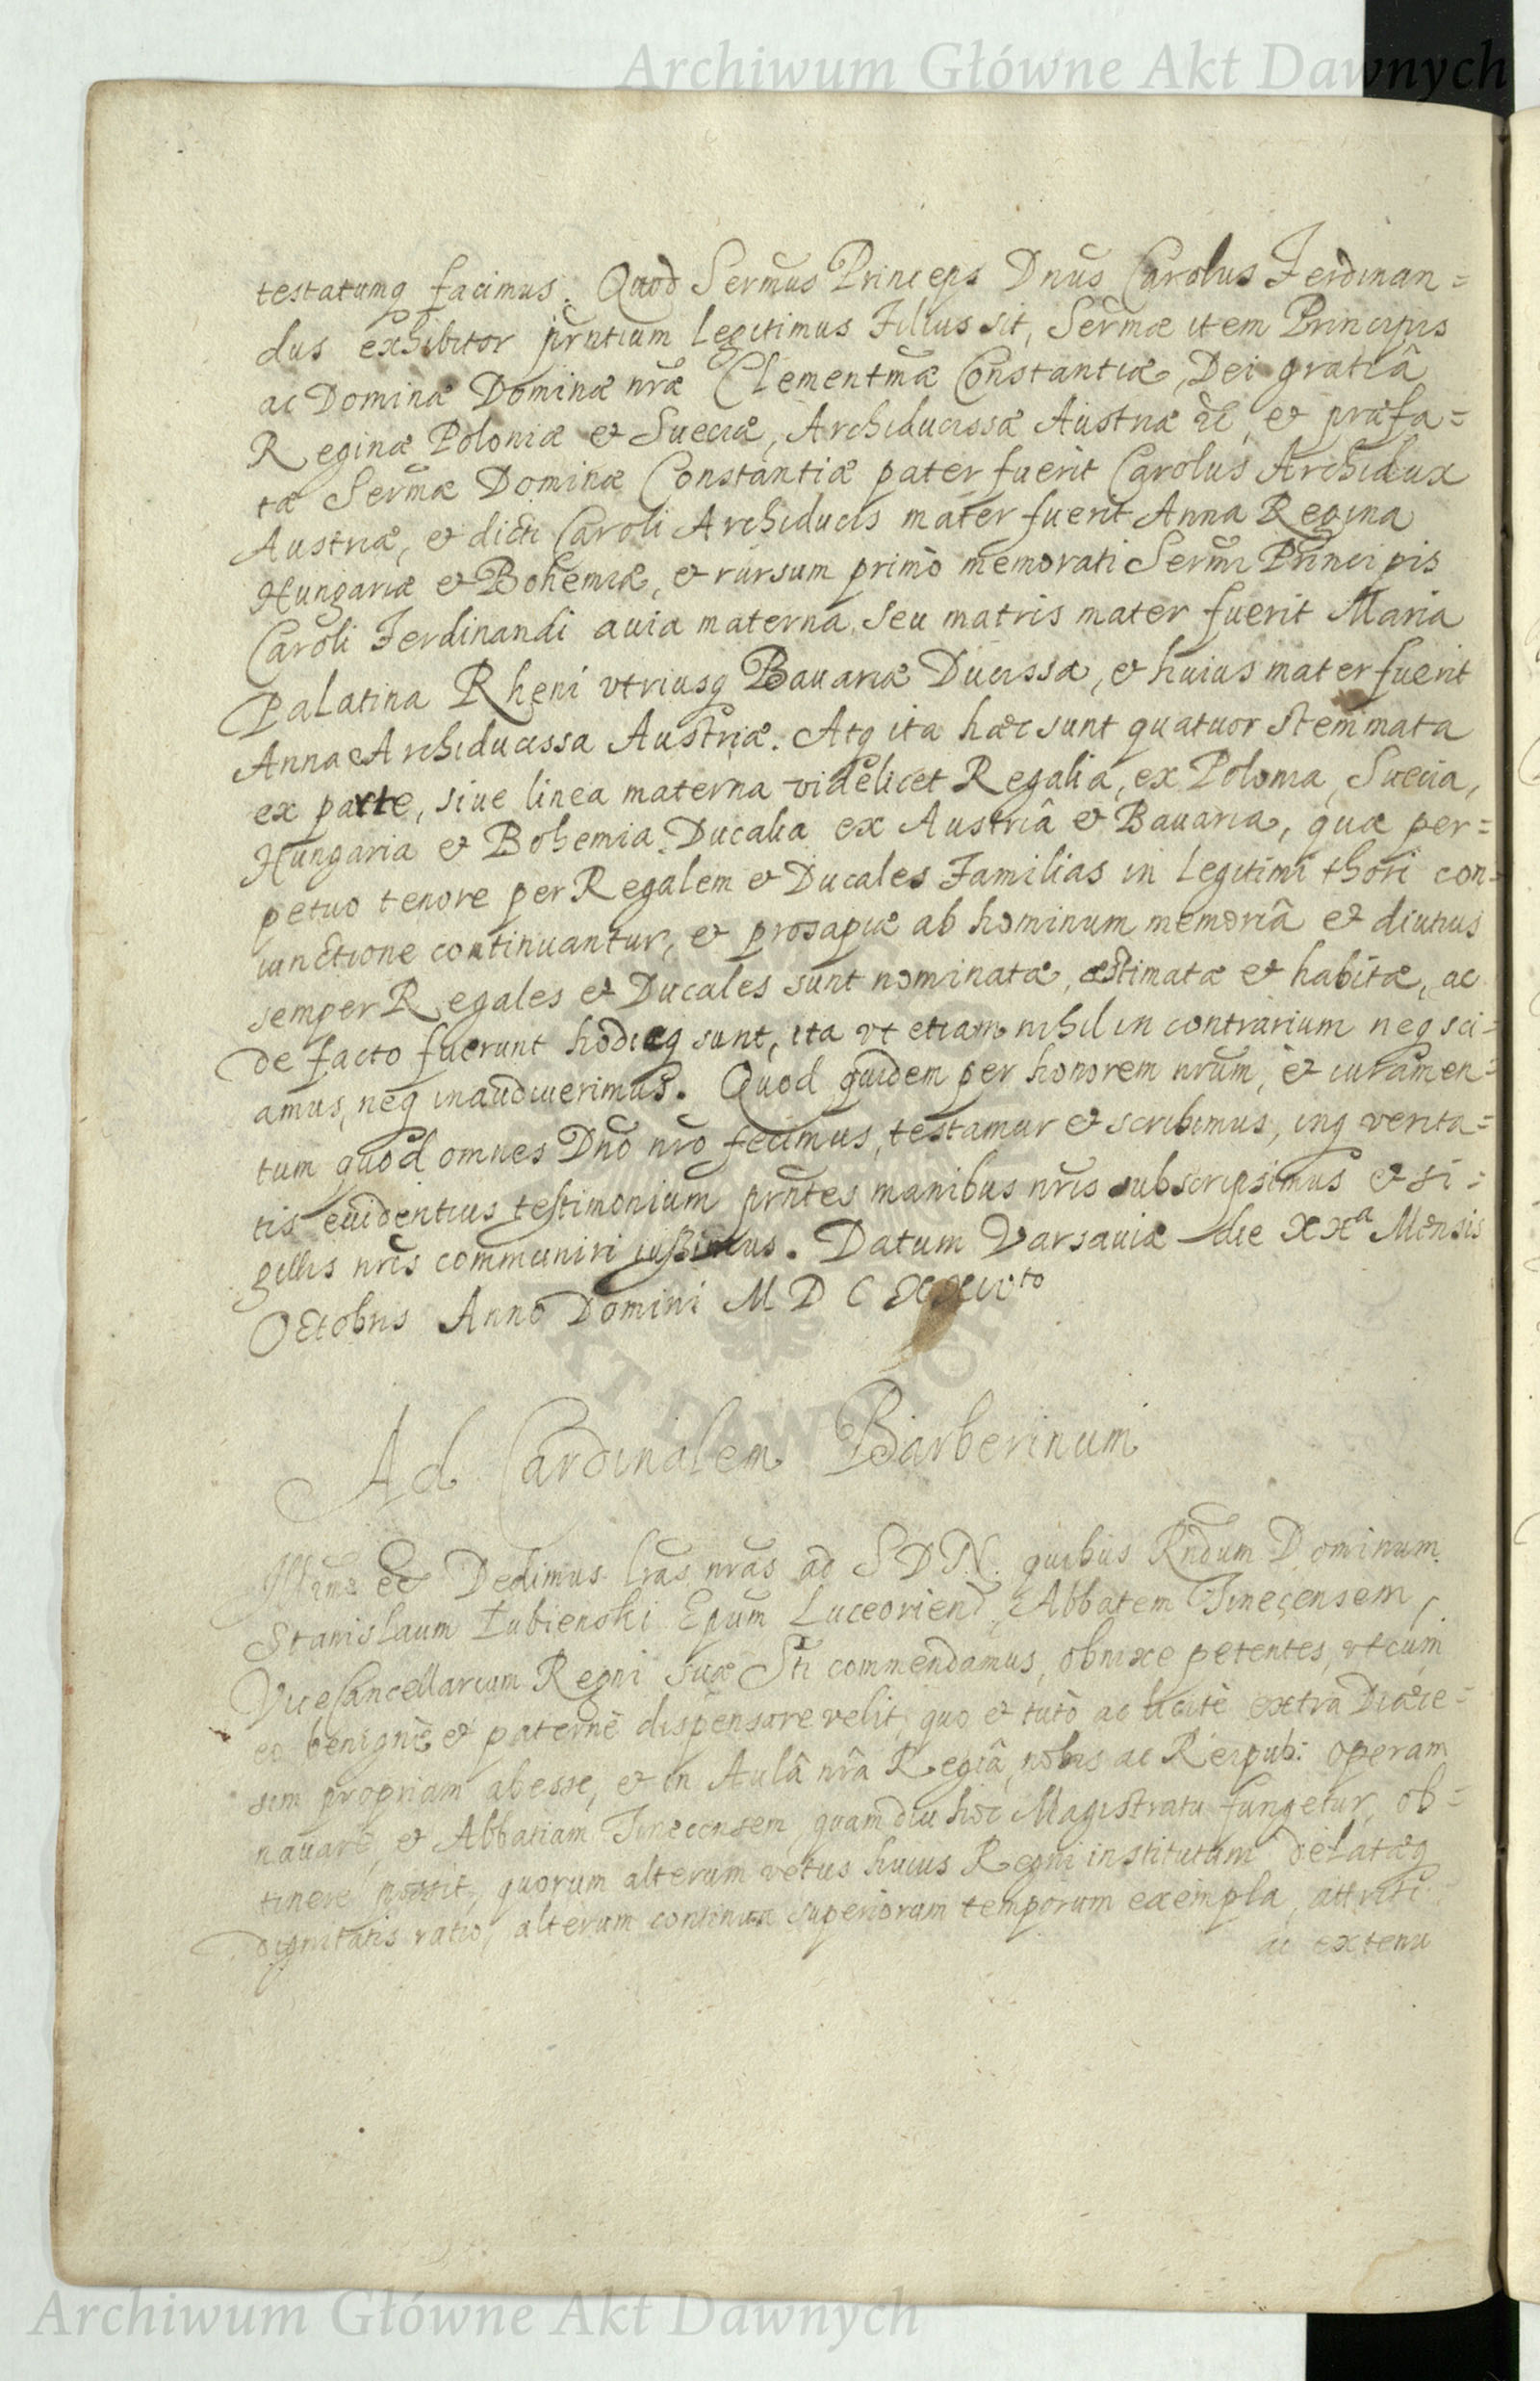 Archiwum Główne Akt Dawnych
testatumq facimus. Quod Sermus Princeps Dnus Carolus Ferdinan=
dus exhibitor prntium legitimus Filius sit, Sermæ item Principis
ac Dominæ Dominæ nræ Clementmæ Constantiæ, Dei gratiâ
Reginæ Poloniæ et Sueciæ, Archiducissæ Austriæ &c, et præfa=
tæ Sermæ Dominæ Constantiæ pater fuerit Carolus Archidux
Austriæ, et dicti Caroli Archiducis mater fuerit Anna Regina
Hungariæ et Bohemiæ, et rursum primò memorati Sermi Principis
Caroli Ferdinandi auia materna, seu matris mater fuerit Maria
Palatina Rheni vtriusq Bauariæ Ducissa, et huius mater fuerit
Anna Archiducissa Austriæ. Atq ita hæc sunt quatuor stemmata
ex parte, siue linea materna videlicet Regalia, ex Polonia, Suecia,
Hungaria et Bohemia. Ducalia ex Austriâ et Bauaria, quæ per=
petuo tenore per Regalem et Ducales Familias in legitimi thori con=
iunctione continuantur, et prosapiæ ab hominum memoriâ et diutius
semper Regales et Ducales sunt nominatæ, æstimatæ et habitæ, ac
de facto fuerunt hodieq sunt, ita vt etiam nihil in contrarium neq sci=
amus, neq inaudiuerimus. Quod quidem per honorem nrum, et iuramen=
tum quod omnes Dno nro fecimus, testamur et scribimus, inq verita=
tis euidentius testimonium prntes manibus nris subscripsimus et si=
gillis nris communiri iussimus. Datum Varsauiæ die XXa Mensis
Octobris Anno Domini M D C XXivto
Ad Cardinalem Barberinum
Illme &c Dedimus lras nras ad S D N. quibus Rndum Dominum
Stanislaum Łubienski Epum Luceorien, Abbatem Tinecensem
ViceCancellarium Regni suæ Sti commendamus, obnixe petentes, vt cum
eo benignè et paternè dispensare velit, quo et tutò ac licitè extra Diæce=
sim propriam abesse, et in Aulâ nrâ Regiâ, nobis ac Reipub: operam
nauare, et Abbatiam Tinecensem, quamdiu hoc Magistratu fungetur, ob=
tinere possit, quorum alterum vetus huius Regni institutum delatæq
dignitatis ratio, alterum continua superiorum temporum exempla, attriti
ac extenu
Archiwum Główne Akt Dawnych